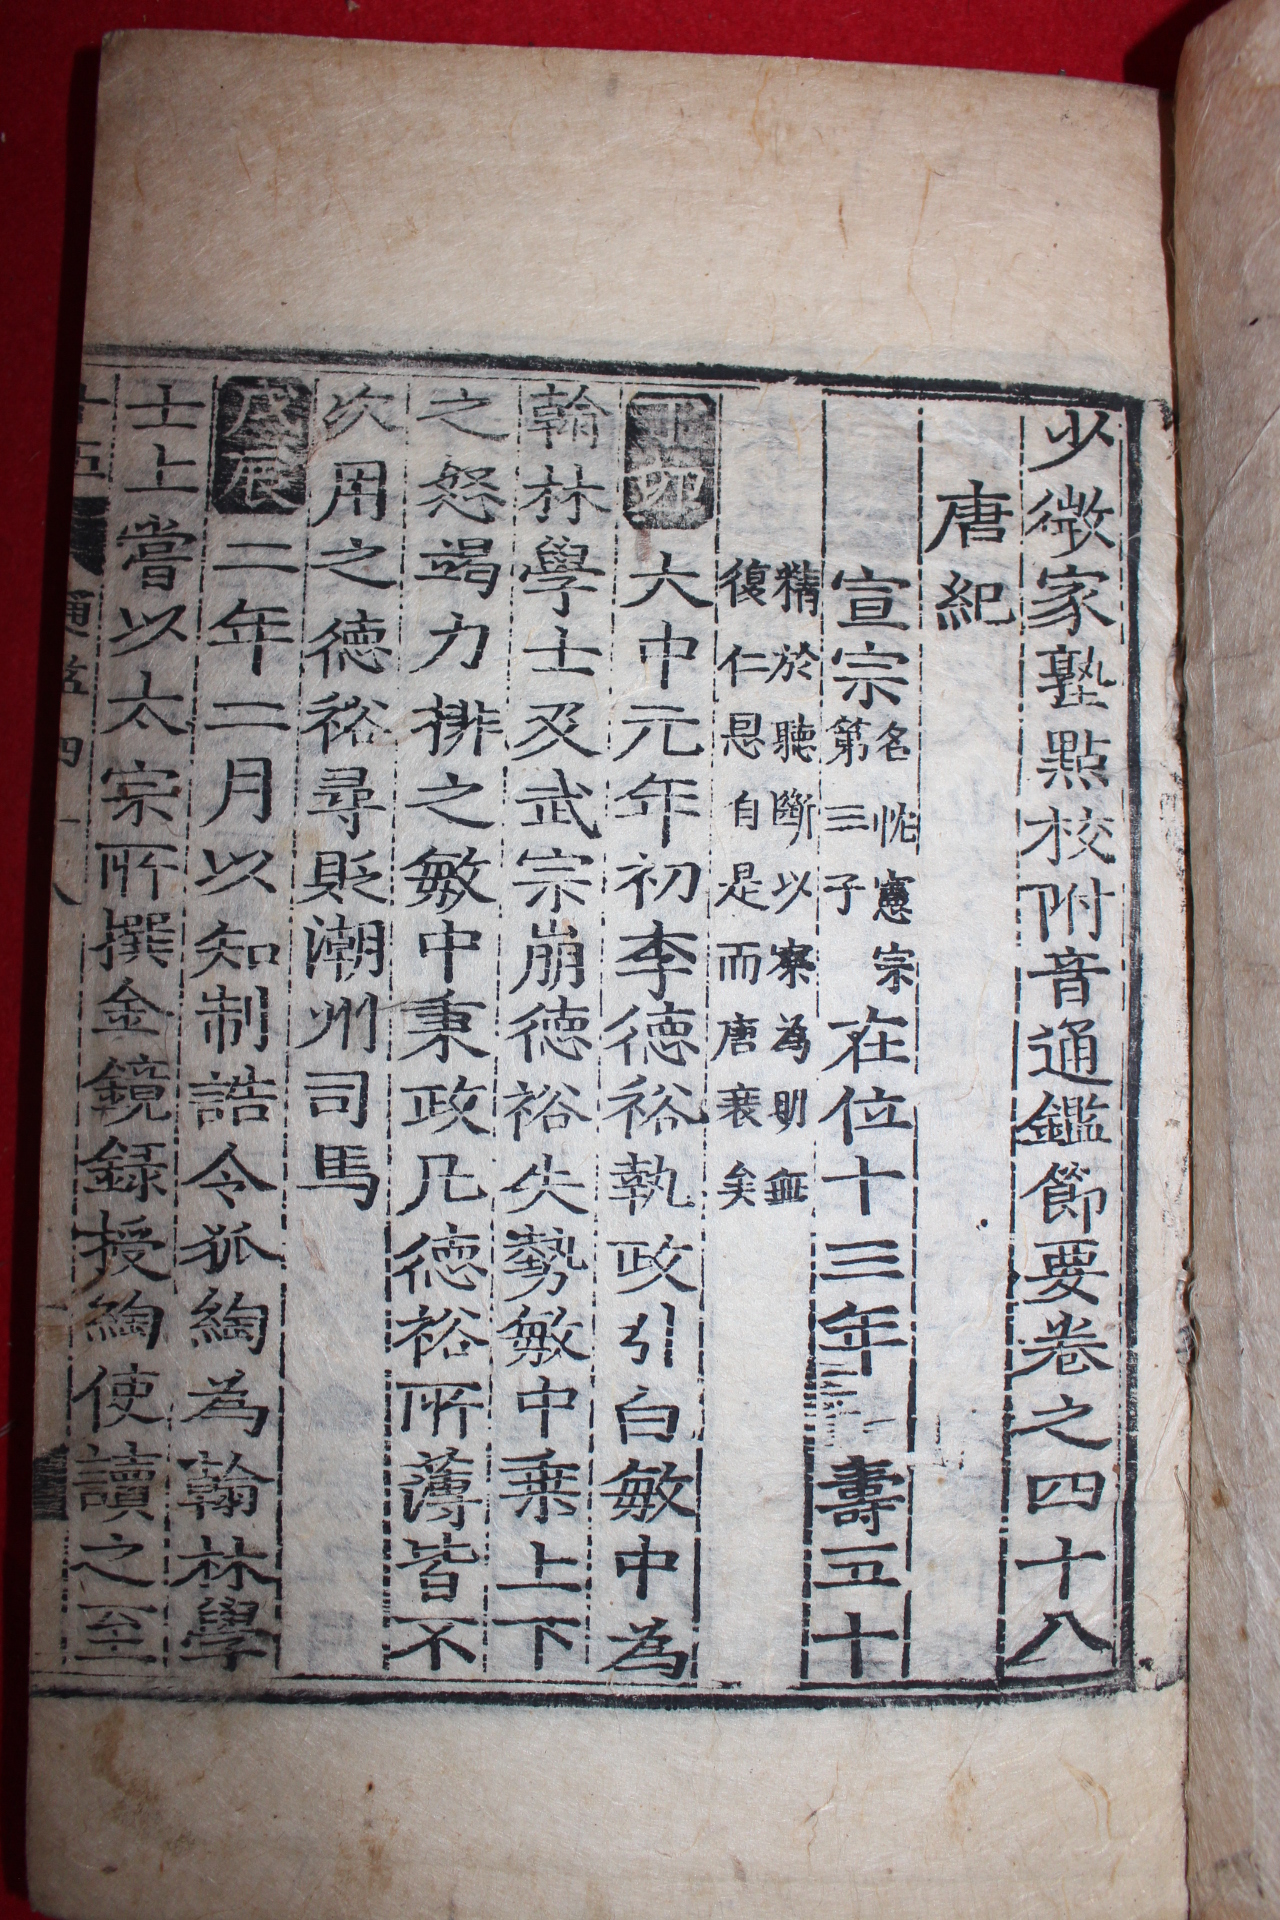 少微家塾點校附音通鑑節要卷之四十八
唐紀
宣宗名忱憲宗第三子在位十三年壽五十
精於聽斷以察為明無
復仁恩自是而唐衰矣
丁卯大中元年初李德裕執政引白敏中為
翰林學士及武宗崩德裕失勢敏中乗上下
之怒竭力排之敏中秉政凡德裕所薄皆不
次用之德裕尋貶潮州司馬
戊辰二年二月以知制誥令狐綯為翰林學
士上嘗以太宗所撰金鏡録授綯使讀之至
通 四十八